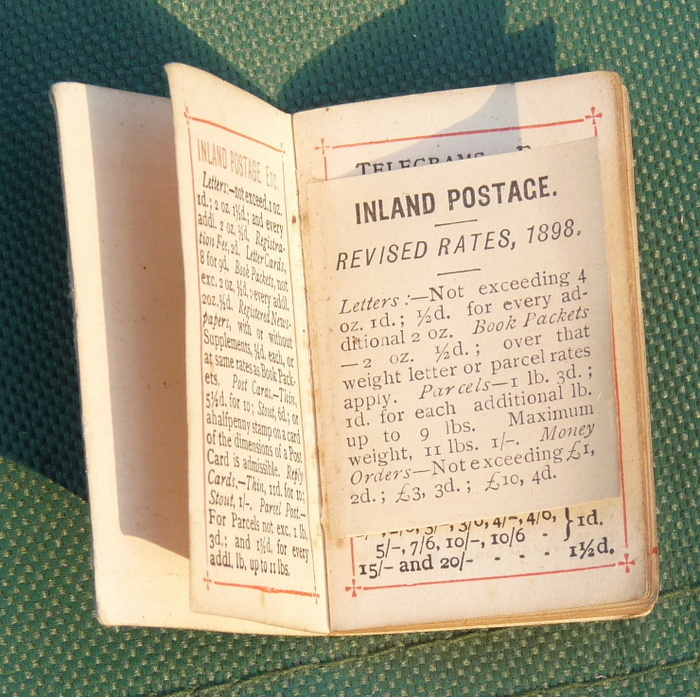 INLAND POSTAGE ETC.
Letters:—not exceed. 1 oz.
1d.; 2 oz. 1½d.; and every
addl. 2 oz. ½d. Registra-
tion Fee, 2d. Letter Cards,
8 for 9d. Book Packets, not
exc. 2 oz. ½d.; every addl.
2 oz. ½d. Registered News-
papers, with or without
Supplements, ½d. each, or
at same rates as Book Pack-
ets. Post Cards.—Thin,
5½d. for 10; Stout, 6d.; or
a halfpenny stamp on a card
of the dimensions of a Post
Card is admissible. Reply
Cards.—Thin, 11d. for 10;
Stout, 1/-. Parcel Post.—
For Parcels not exc. 1 lb.
3d.; and 1½d. for every
addl. lb, up to 11 lbs.
TELEGRAMS
INLAND POSTAGE.
REVISED RATES, 1898.
Letters:—Not exceeding 4
oz. 1d.; ½d. for every ad-
ditional 2 oz. Book Packets
—2 oz. ½d.; over that
weight letter or parcel rates
apply. Parcels—1 lb. 3d.;
1d. for each additional lb.
up to 9 lbs. Maximum
weight, 11 lbs. 1/-. Money
Orders—Not exceeding £1,
2d.; £3, 3d.; £10, 4d.
3/-, 3/6, 4/-, 4/6, } 1d.
5/-, 7/6, 10/-, 10/6 -
15/- and 20/- - - - 1½d.